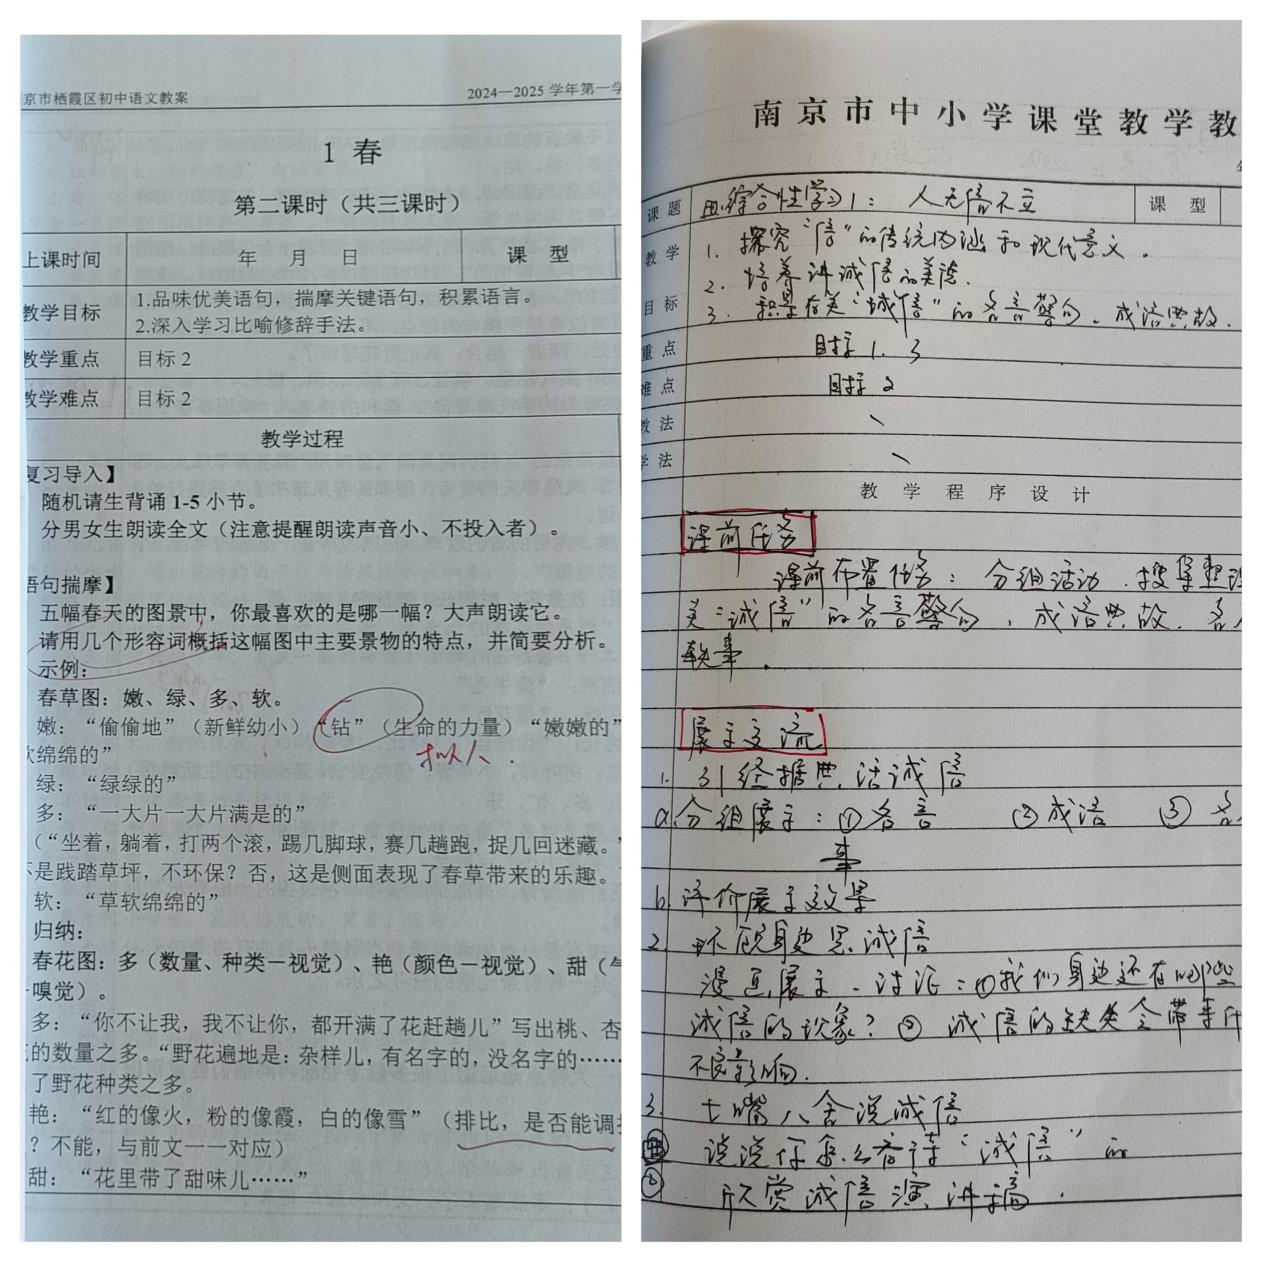 京市栖霞区初中语文教案
2024—2025 学年第一学
1 春
第二课时（共三课时）
上课时间
年 月 日
课 型
教学目标
1.品味优美语句，揣摩关键语句，积累语言。
2.深入学习比喻修辞手法。
教学重点
目标 2
教学难点
目标 2
教学过程
复习导入】
随机请生背诵 1-5 小节。
分男女生朗读全文（注意提醒朗读声音小、不投入者）。
语句揣摩】
五幅春天的图景中，你最喜欢的是哪一幅？大声朗读它。
请用几个形容词概括这幅图中主要景物的特点，并简要分析。
示例：
春草图：嫩、绿、多、软。
嫩：“偷偷地”（新鲜幼小）“钻”（生命的力量）“嫩嫩的”
软绵绵的”
拟人
绿：“绿绿的”
多：“一大片一大片满是的”
（“坐着，躺着，打两个滚，踢几脚球，赛几趟跑，捉几回迷藏。”
是践踏草坪，不环保？否，这是侧面表现了春草带来的乐趣。
软：“草软绵绵的”
归纳：
春花图：多（数量、种类－视觉）、艳（颜色－视觉）、甜（
嗅觉）。
多：“你不让我，我不让你，都开满了花赶趟儿”写出桃、杏
的数量之多。“野花遍地是：杂样儿，有名字的，没名字的……
了野花种类之多。
艳：“红的像火，粉的像霞，白的像雪”（排比，是否能调
？不能，与前文一一对应）
甜：“花里带了甜味儿……”
南京市中小学课堂教学教
课题
综合性学习1：人无信不立
课 型
教学
目标
1. 探究“信”的传统内涵和现代意义。
2. 培养讲诚信的美德.
3. 积累有关“诚信”的名言警句、成语典故.
重点
目标 1. 3
难点
目标 2
教法
学法
教学程序设计
课前任务
课前布置任务：分组活动.搜集整理
关于“诚信”的名言警句、成语典故、名人
轶事.
展示交流
1. 引经据典话诚信
a.分组展示：①名言 ②成语 ③名
事
b.评价展示效果
2. 环顾身边思诚信
漫画展示.讨论：①我们身边还有哪些
诚信的现象？②诚信的缺失会带来
不良影响.
3. 七嘴八舌说诚信
说说你怎么看待“诚信”的
② 欣赏诚信演讲稿.